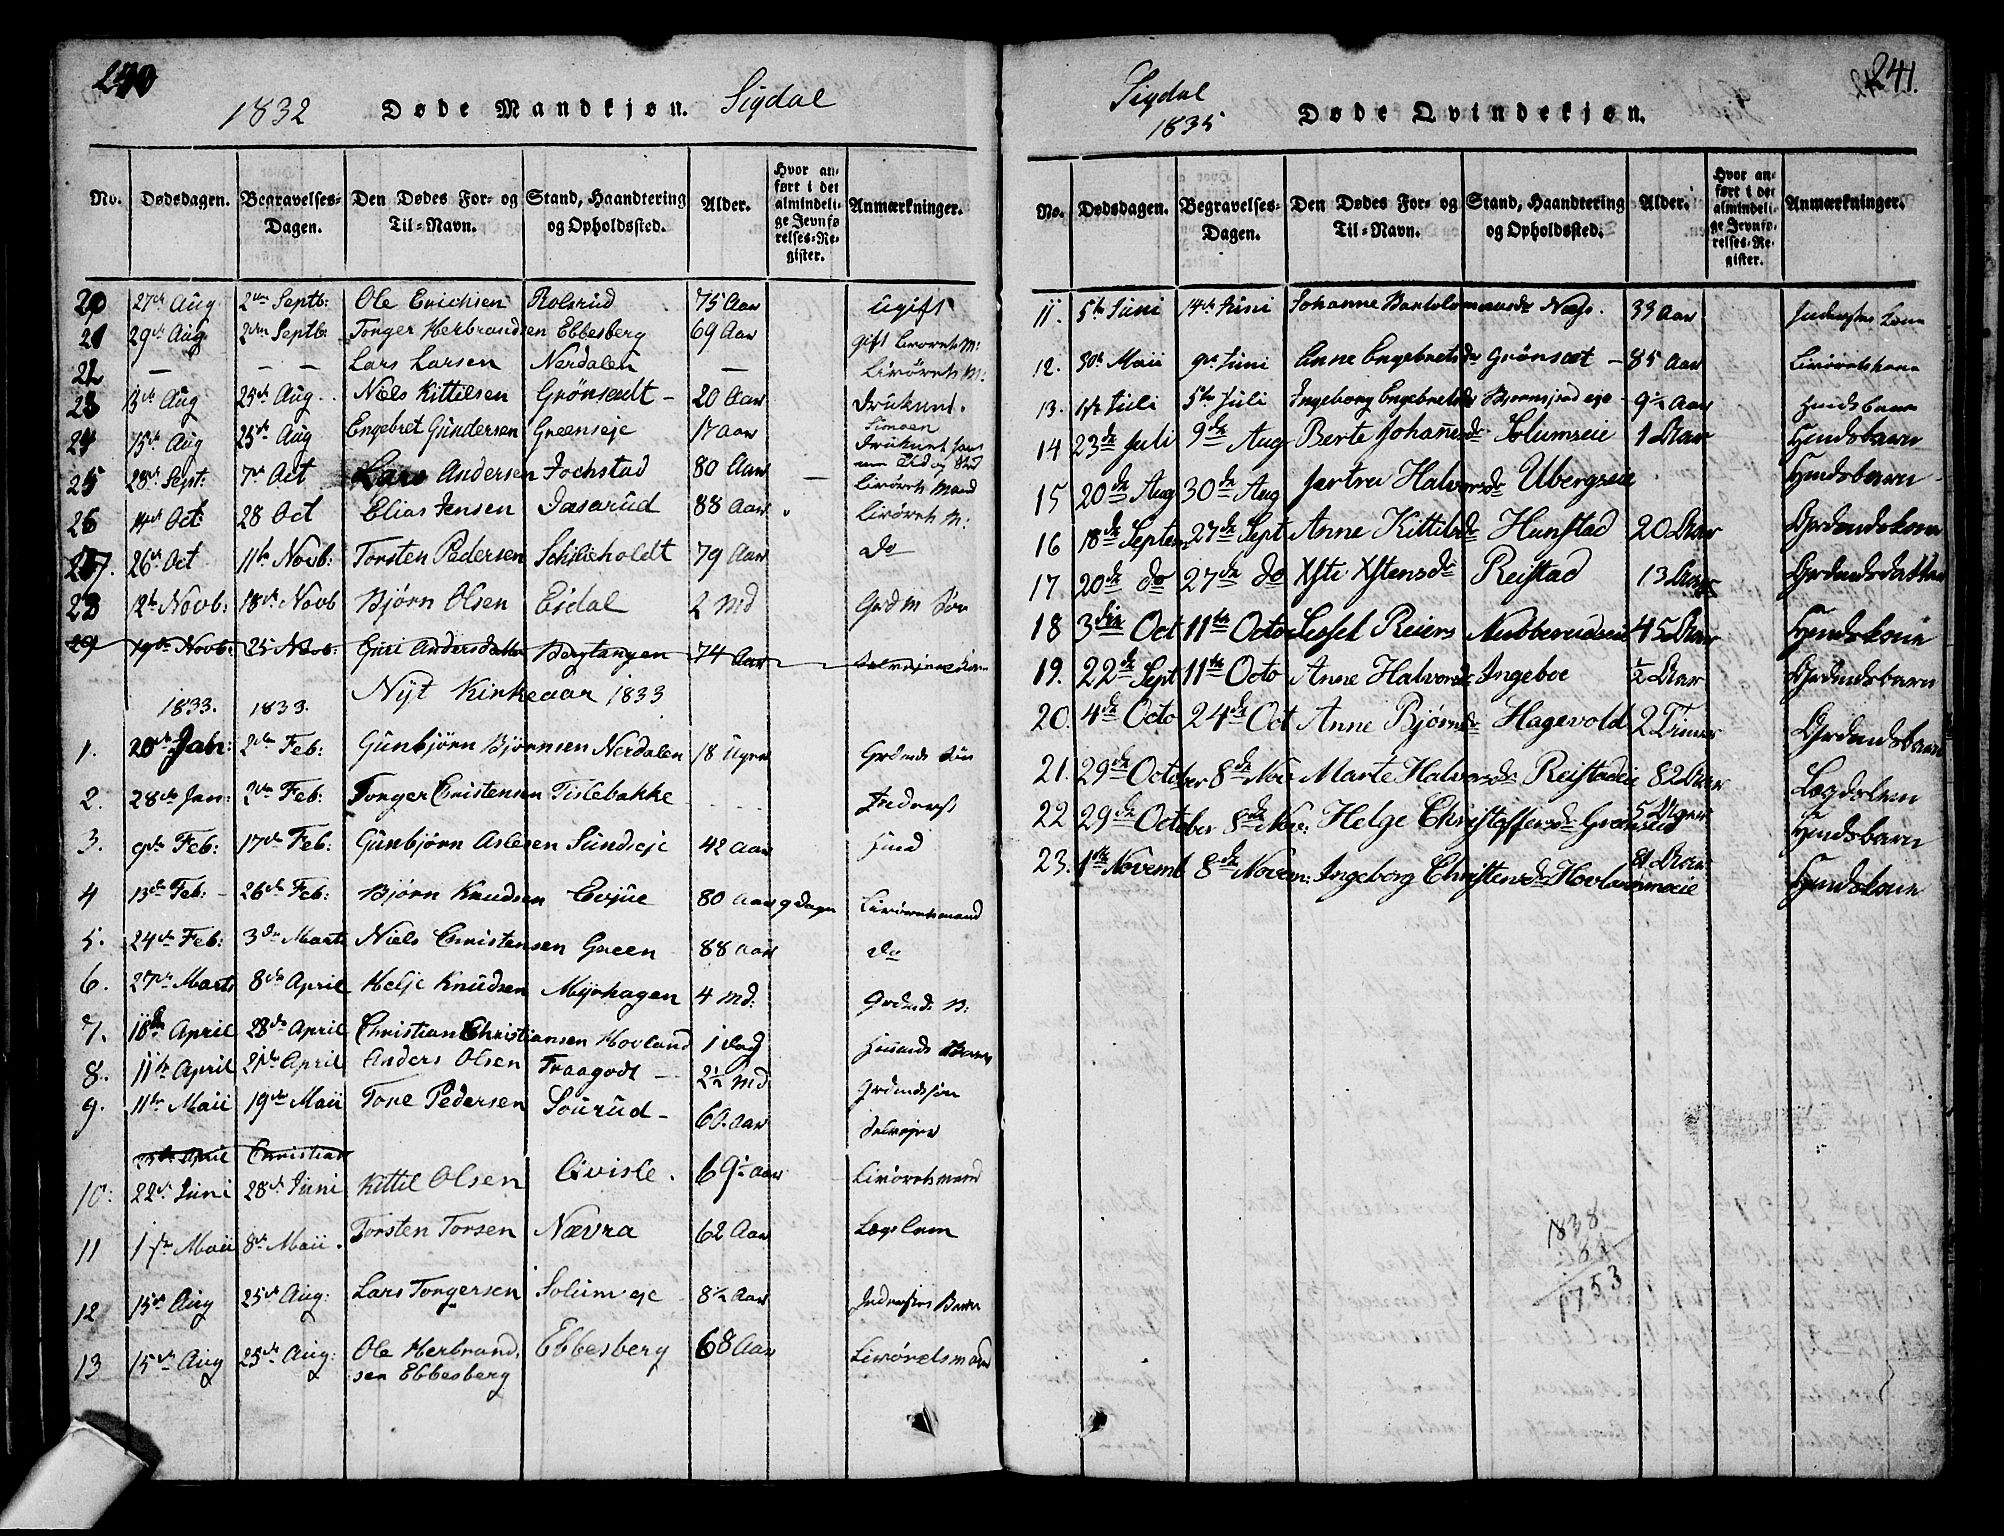 240
1832 Døde Mandkjøn. Sigdal
No. Dødsdagen. Begravelses-Dagen. Den Dødes For- og Til-Navn. Stand, Haandtering og Opholdssted. Alder. Hvor anført i det almindelige Jevnførelses-Register. Anmærkninger.
20 27de Aug 2den Septb: Ole Erichsen Rolsrud 75 Aar ugift
21 29de Aug 2den Septb: Torger Herbrandsen Ebbesberg 69 Aar gift Livørets M:
22 — — — Lars Larsen Nerdalen — Livørets M:
23 15de Aug 25de Aug. Niels Kittilsen Grønsedt — 20 Aar Druknede.
24 15de Aug 25de Aug Engebret Gundersen Greenseje 17 aar
25 28de Sept: 7de Oct Lars Andersen Jochstad 80 Aar — Livørets Mand
26 14de Oct: 28 Oct Elias Jensen Dæsarud 88 Aar Livørets M:
27. 26de Oct 11te Novb: Torsten Pedersen 79 Aar do
28 12te Novb: 18de Novb Bjørn Olsen Eidal 2 Md Grdm Søn
29 19de Novb: 25 Novb: Guri Andersdatter Bergtangen 74 Aar
Nyt Kirkeaar 1833
1833. 1833.
1. 20de Jan: 2den Feb: Gunbjørn Bjørnsen Nerdalen 18 Uger Grdmds Søn
2. 28de Jan: 2den Feb: Torger Christensen Tislebakke Inderst
3. 9de Feb: 17de Feb: Gunbjørn Aslesen Sundseje 42 aar
4 13de Feb: - 26de Feb: Bjørn Knudsen Evjue 80 Aar 9 dage Livøretsmand
5. 24de Feb: 3de Marts Niels Christensen Green 88 aar do
6. 27de Marts 8de April Helje Knudsen Myrhagen 4 Md: Grdmds B:
7. 18de April 28de April Christian Christiansen Hovland 1 dag Huusmds Barn
8. 11te April 21de April Anders Olsen Fraagodt — 2½ Md Grdmdssøn
9. 11te Maii 19de Maii Tore Pedersen Sourud — 60. Aar Selvejer
April Christian
10: 22de Juni 28de Juni Kittil Olsen Evisle. 69½ Aar Livøretsmand
11 1ste Maii 8de Maii. Torsten Torsen Nævra 62 Aar Lægslem
12 15de Aug 25de Aug: Lars Torgersen Solumseje 8½ Aar Inderstes Barn
13 15de Aug 25de Aug: Ole Herbrand- Ebbesberg 68 Aar Livøretsmand
sen Ebbesberg
241.
Sigdal
1835 Døde Qvindekjøn.
No. Dødsdagen. Begravelses-Dagen. Den Dødes For- og Til-Navn. Stand, Haandtering og Opholdssted. Alder. Hvor anført i det almindelige Jevnførelses-Register. Anmærkninger.
11. 5te Juni 14de Juni Johanne Bartolomæusdr Næss. 33 Aar Inderstes kone
12. 30te Maii 9de Juni Anne Engebretsdr Grønset — 85 Aar Livøretskone
13. 1ste Juli 5te Juli Ingeborg Engebretsdr eje - 9½ Aar Hmdsbarn
14 23de Juli 9de Aug Berte Johannesdr Solumseie 1 Aar Hmdsbarn
15 20de Aug 30de Aug Jertru Halvorsdr Ubergseie Hmdsbarn
16 18de Septem 27de Sept Anne Kittilsdr Hunstad 20 Aar Grdmdskone
17 20de do 27de do Xsti Xstensdr Reistad 13 Aar Grdmdsdatter
18 3die Oct 11te Octo Sessel Reiers Nubberudseie 45 Aar Hmdskone
19. 22de Sept 11te Octo Anne Halvorsdr Ingeboe ½ Aar Grdmdsbarn
20. 4de Octo 24de Oct Anne Bjørnsdr Hagevold 2 Timer Grdmdsbarn
21. 29de October 8de Nov Marte Halvorsdr Reistadeie 82 Aar Lægdslem
22 29de October 8de Nov: Helge Christoffersdr Grønseie 5 Uger Hmdsbarn
23. 1ste Novemb 8de Novem: Ingeborg Christensdr 81 Aar Hmdskone
1838
84
1753